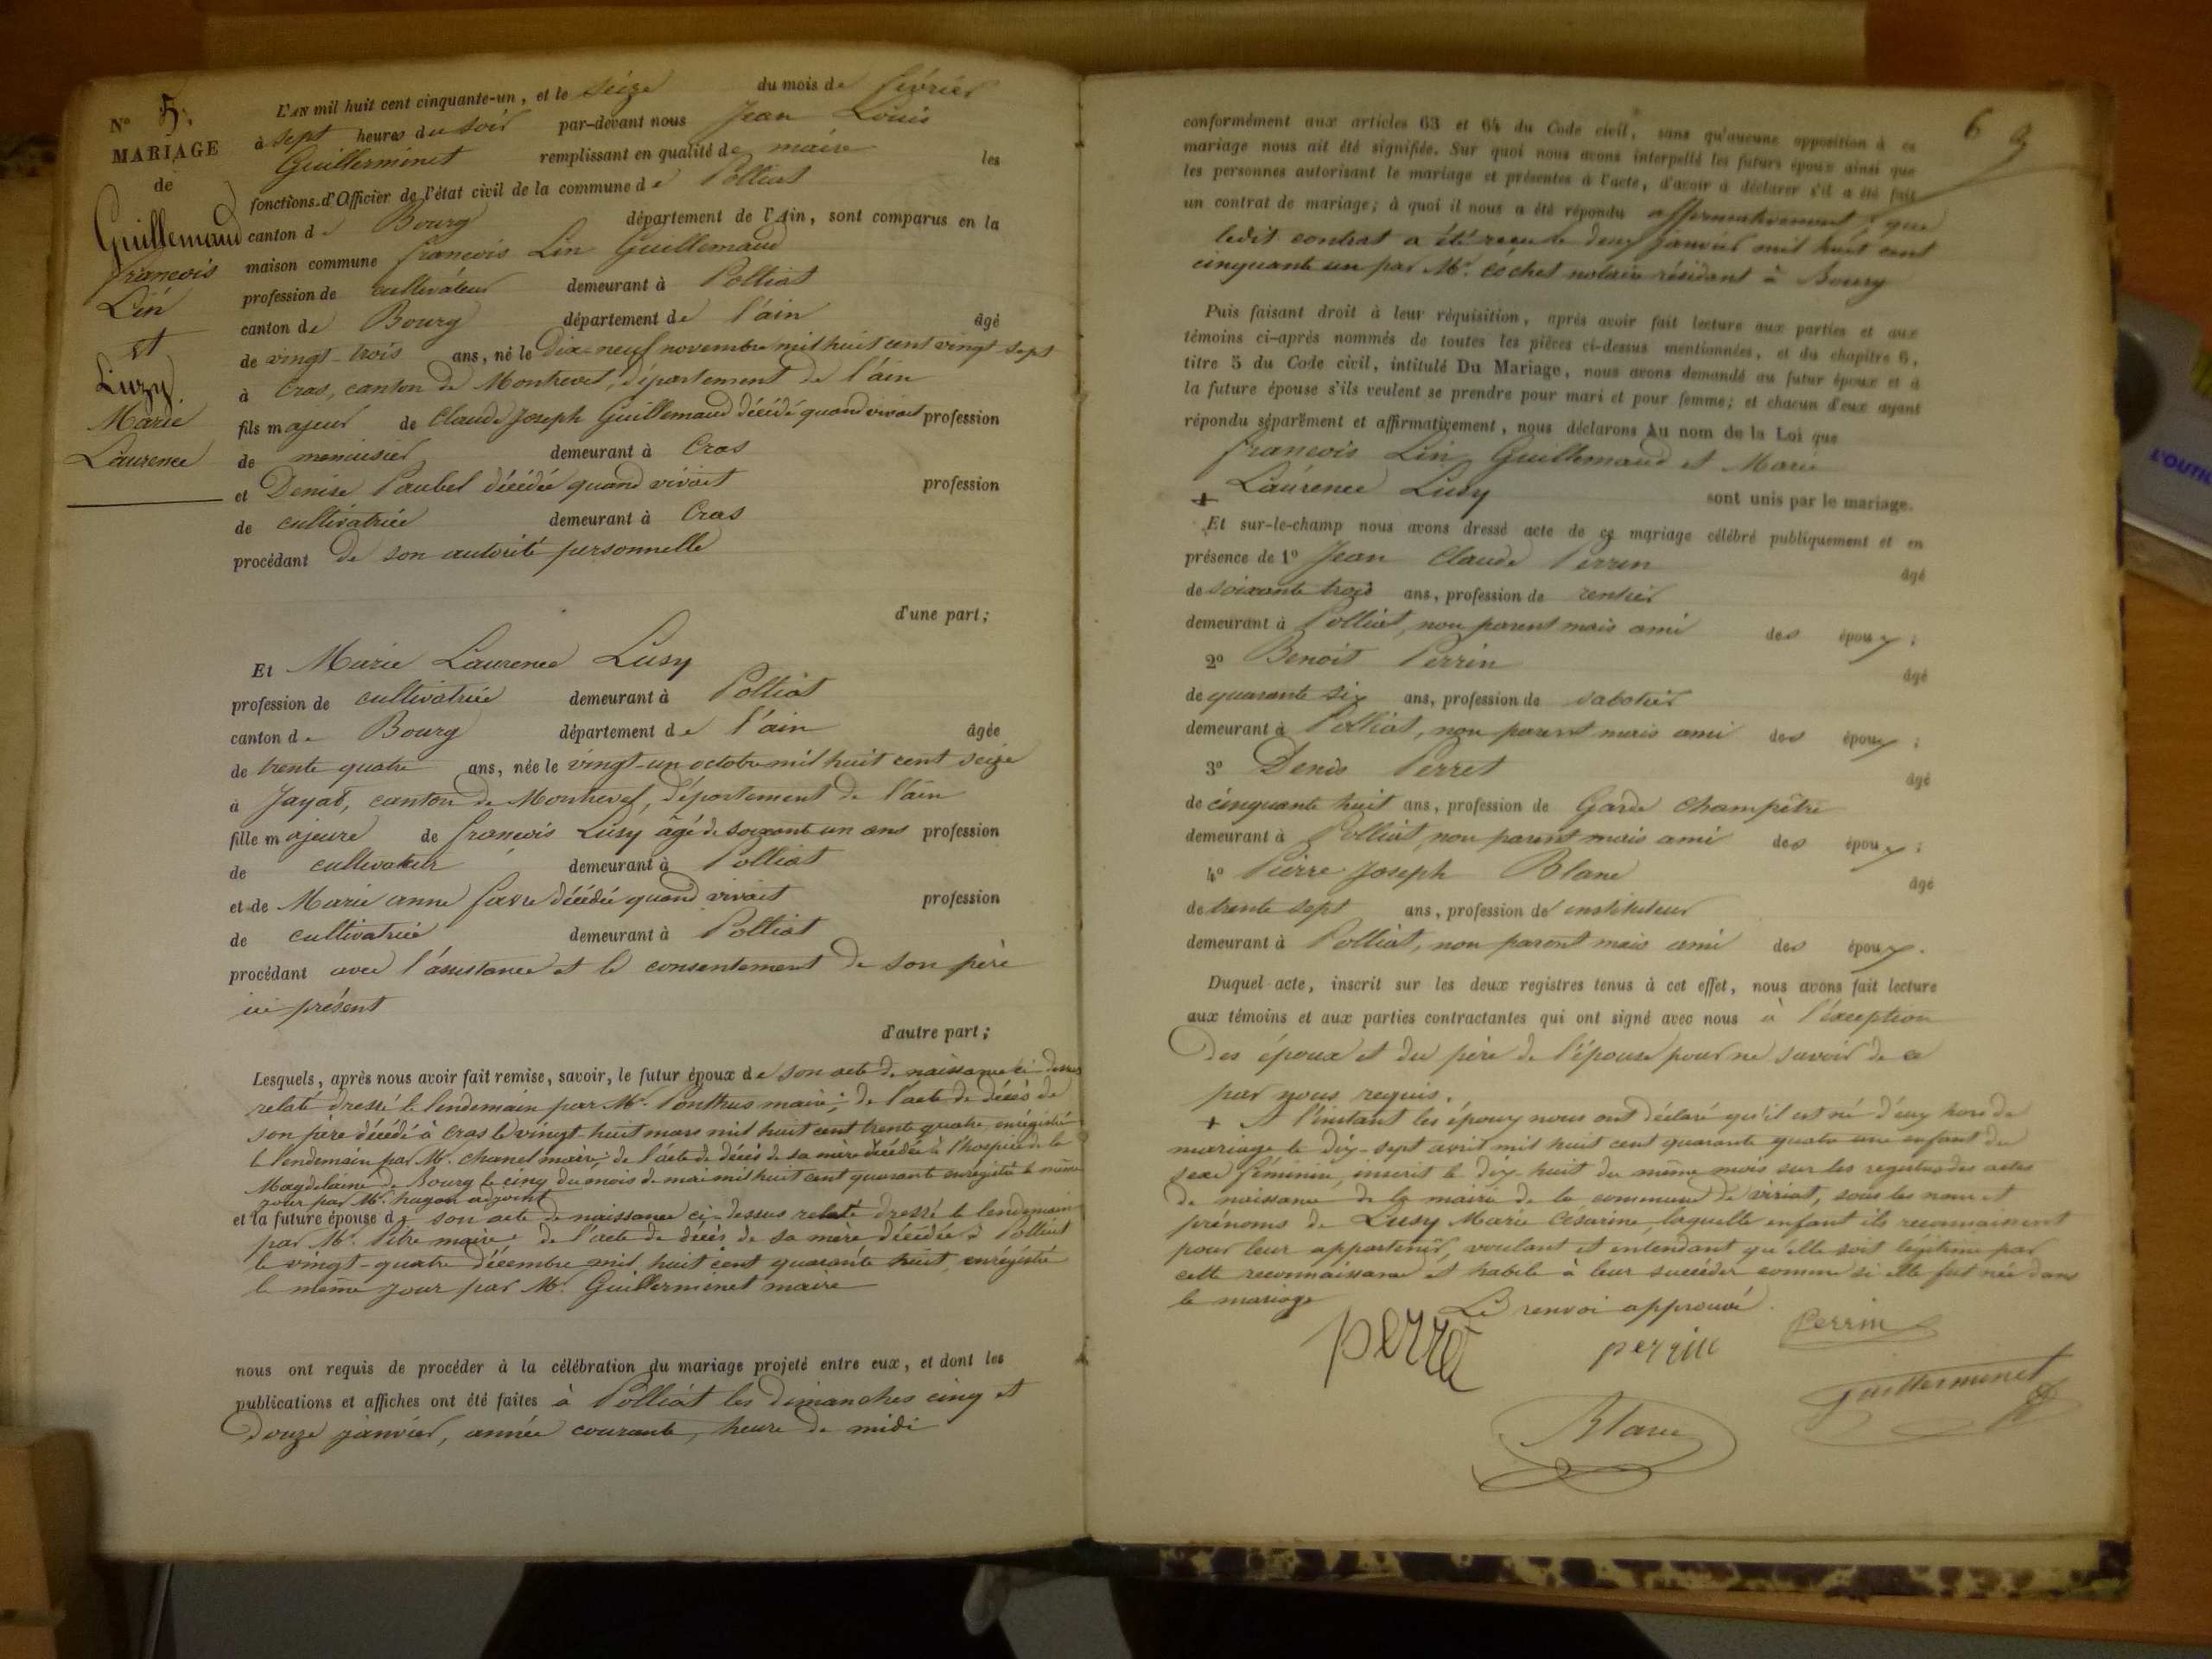 N.º 5.
MARIAGE
de
Guillemaud
françois
Lin
et
Luzy
Marie
Laurence
L'AN mil huit cent cinquante-un, et le seize du mois de février
à sept heures du soir par-devant nous Jean Louis
Guillerminet remplissant en qualité de maire les
fonctions d'Officier de l'état civil de la commune de Polliat
canton de Bourg département de l'Ain, sont comparus en la
maison commune françois Lin Guillemaud
profession de cultivateur demeurant à Polliat
canton de Bourg département de l'ain âgé
de vingt-trois ans, né le Dix-neuf novembre mil huit cent vingt sept
à Cras, canton de Montrevel, département de l'ain
fils majeur de Claude Joseph Guillemaud décédé quand vivait profession
de menuisier demeurant à Cras
et Denise Paubel décédée quand vivait profession
de cultivatrice demeurant à Cras
procédant de son autorité personnelle
d'une part;
Et Marie Laurence Lusy
profession de cultivatrice demeurant à Polliat
canton de Bourg département de l'ain âgée
de trente quatre ans, née le vingt-un octobre mil huit cent seize
à Jayat, canton de Montrevel, département de l'ain
fille majeure de françois Lusy âgé de soixante un ans profession
de cultivateur demeurant à Polliat
et de Marie anne favre décédée quand vivait profession
de cultivatrice demeurant à Polliat
procédant avec l'assistance et le consentement de son père
ici présent
d'autre part;
Lesquels, après nous avoir fait remise, savoir, le futur époux de son acte de naissance ci-dessus
relaté dressé le lendemain par Mr. Ponthus maire; de l'acte de décès de
son père décédé à Cras le vingt-huit mars mil huit cent trente quatre, enrégistré
le lendemain par Mr. Chanel maire; de l'acte de décès de sa mère décédée à l'hospice de la
Magdelaine de Bourg le cinq du mois de mai mil huit cent quarante enregistré le même
jour par Mr. hugon adjoint
et la future épouse de son acte de naissance ci-dessus relaté dressé le lendemain
par Mr. maire de l'acte de décès de sa mère décédée à Polliat
le vingt-quatre décembre mil huit cent quarante huit, enrégistré
le même jour par Mr. Guillerminet maire
nous ont requis de procéder à la célébration du mariage projeté entre eux, et dont les
publications et affiches ont été faites à Polliat les dimanches cinq et
douze janvier, année courante, heure de midi
6
conformément aux articles 63 et 64 du Code civil, sans qu'aucune opposition à ce
mariage nous ait été signifiée. Sur quoi nous avons interpellé les futurs époux ainsi que
les personnes autorisant le mariage et présentes à l'acte, d'avoir à déclarer s'il a été fait
un contrat de mariage; à quoi il nous a été répondu affirmativement, que
ledit contrat a été reçu le deux janvier mil huit cent
cinquante un par Mr. Cochet notaire résidant à Bourg
Puis faisant droit à leur réquisition, après avoir fait lecture aux parties et aux
témoins ci-après nommés de toutes les pièces ci-dessus mentionnées, et du chapitre 6,
titre 5 du Code civil, intitulé Du Mariage, nous avons demandé au futur époux et à
la future épouse s'ils veulent se prendre pour mari et pour femme; et chacun d'eux ayant
répondu séparément et affirmativement, nous déclarons Au nom de la Loi que
françois Lin Guillemaud et Marie
+ Laurence Lusy sont unis par le mariage.
Et sur-le-champ nous avons dressé acte de ce mariage célébré publiquement et en
présence de 1º Jean Claude Perrin âgé
de soixante trois ans, profession de rentier
demeurant à Polliat, non parent mais ami des époux;
2º Benoit Perrin âgé
de quarante six ans, profession de sabotier
demeurant à Polliat, non parent mais ami des époux;
3º Denis Perret âgé
de cinquante huit ans, profession de Garde Champêtre
demeurant à Polliat, non parent mais ami des époux;
4º Pierre Joseph Blanc âgé
de trente sept ans, profession de instituteur
demeurant à Polliat, non parent mais ami des époux.
Duquel acte, inscrit sur les deux registres tenus à cet effet, nous avons fait lecture
aux témoins et aux parties contractantes qui ont signé avec nous à l'exception
des époux et du père de l'épouse pour ne savoir de ce
par nous requis.
+ A l'instant les époux nous ont déclaré qu'il est né d'eux hors de
mariage le dix-sept avril mil huit cent quarante quatre une enfant du
sexe féminin, inscrit le dix-huit du même mois sur les registres des actes
de naissance de la mairie de la commune de viriat, sous les nom et
prénoms de Lusy Marie Césarine, laquelle enfant ils reconnaissent
pour leur appartenir, voulant et entendant qu'elle soit légitime par
cette reconnaissance et habile à leur succéder comme si elle fut née dans
le mariage
Le renvoi approuvé.
perret perrin Perrin
Guillerminet
Blanc
L'OUTIL